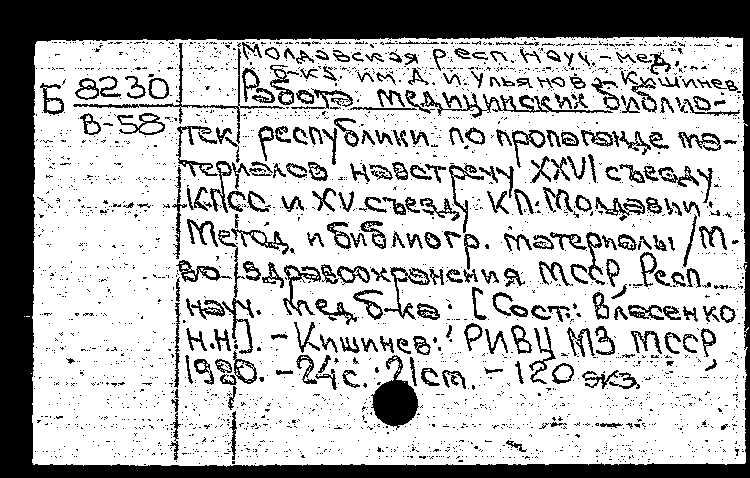 Молдавская респ. науч.-мед.
б-ка им. Д. И. Ульянов - Кишинев
Б 8230
В-58
Работа медицинских библио-
тек республики по пропаганде ма-
териалов навстречу XXVI съезду
КПСС и XV съезду КП Молдавии:
Метод. и библиогр. материалы / М-
во здравоохранения МССР, Респ.
науч. мед. б-ка: [Сост.: Власенко
Н.Н.]. - Кишинев: РИВЦ МЗ МССР,
1980. - 24 с.: 21 см. - 120 экз.